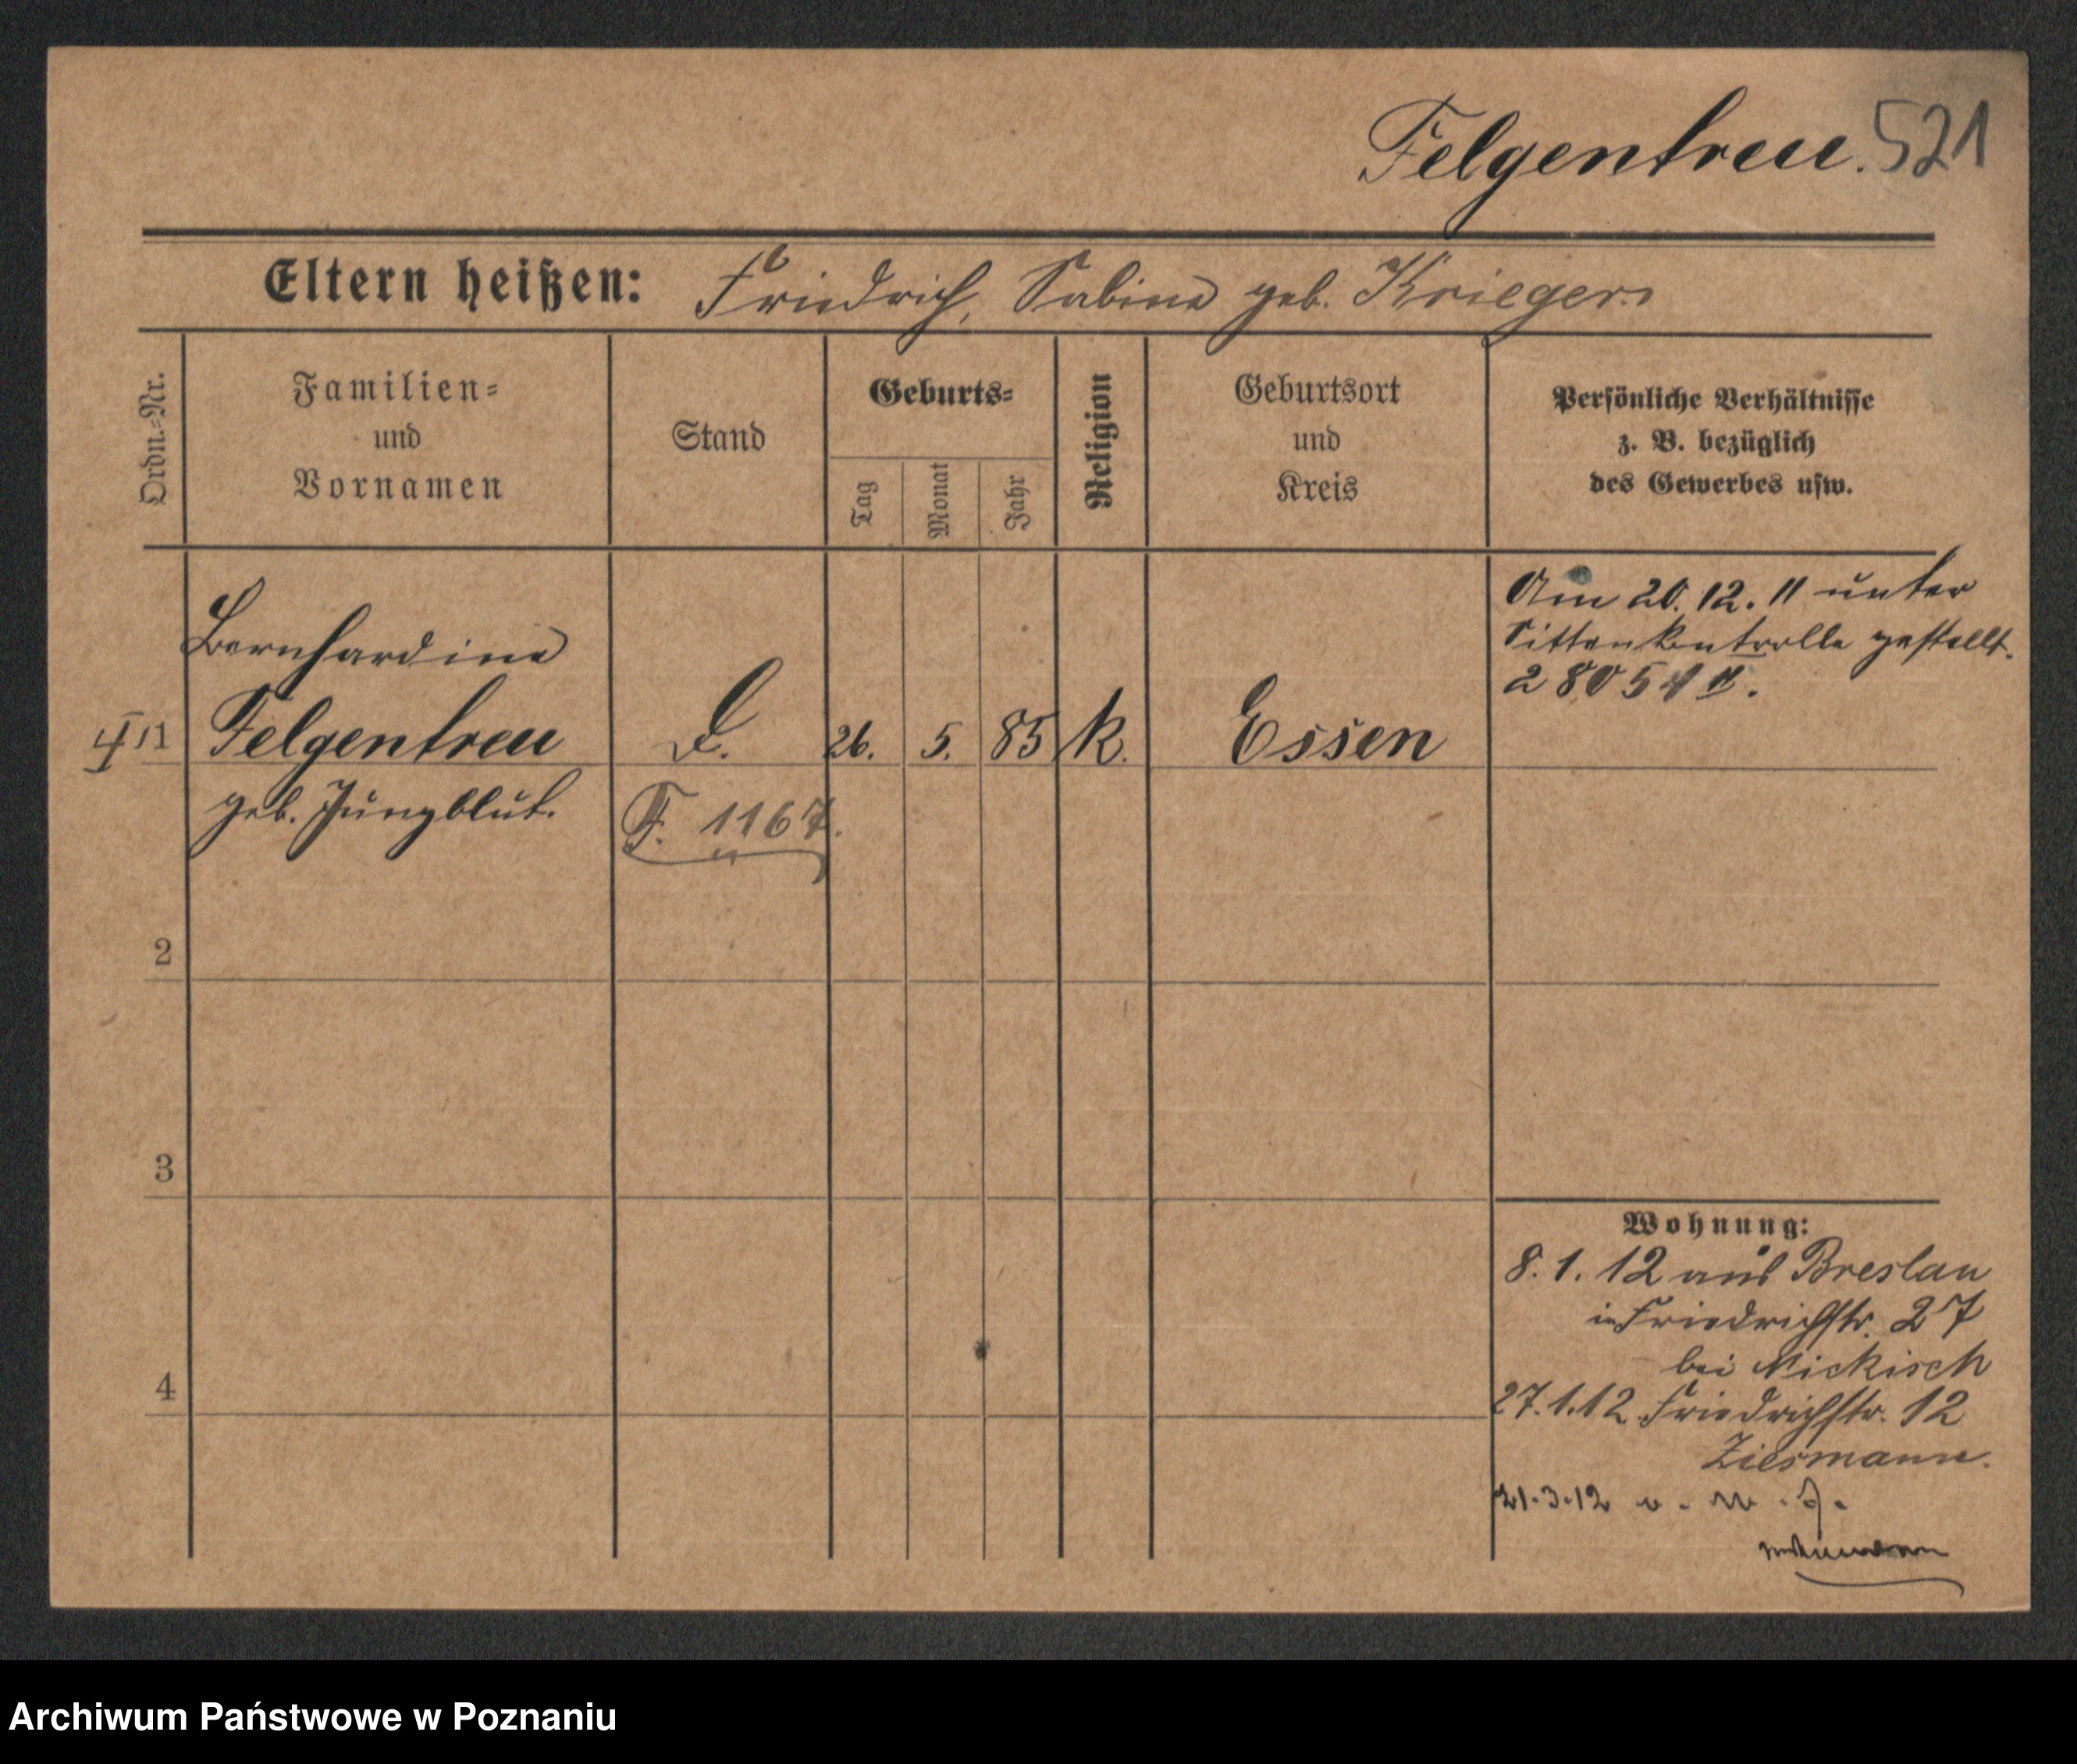 Felgentreu. 521
Eltern heißen: Friedrich, Sabina geb. Krieger.
Ordn.-Nr.
Familien-
und
Vornamen
Stand
Geburts-
Tag
Monat
Jahr
Religion
Geburtsort
und
Kreis
Persönliche Verhältnisse
z. B. bezüglich
des Gewerbes usw.
Am 20. 12. 11 unter
Sittenkontrolle gestellt.
Bernhardine
1 Felgentreu D. 26. 5. 85 k. Essen
geb. Jungblut. F. 1167.
2
3
4
Wohnung:
8. 1. 12 aus Breslau
in Friedrichstr. 27
bei Nickisch
27.1.12 Friedrichstr. 12
Ziesmann.
21.3.12 v. W. J.
Archiwum Państwowe w Poznaniu